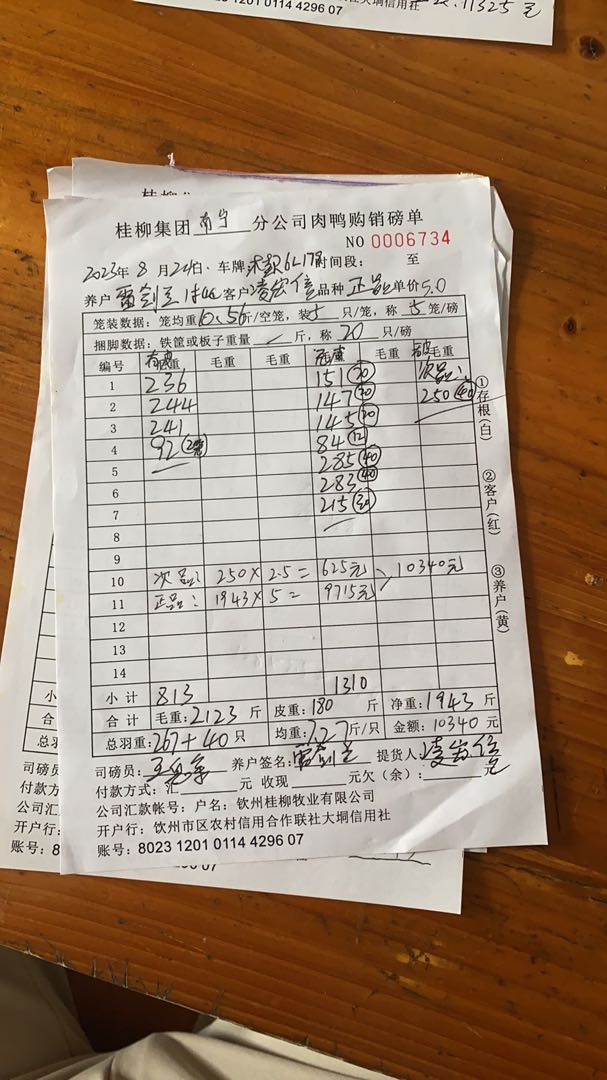 11325元
8023 1201 0114 4296 07
桂柳集团 南宁 分公司肉鸭购销磅单
NO 0006734
2023年 8 月 24日 · 车牌 617 时间段: 至
养户 雷剑 客户 凌 信 品种 正品 单价 5.0
笼装数据: 笼均重 6.56 斤/空笼, 装 5 只/笼, 称 5 笼/磅
捆脚数据: 铁筐或板子重量 / 斤, 称 20 只/磅
编号 有皮 毛重 毛重 毛重 毛重 毛重 毛重
1 236 151 (20) 次品:
2 244 147 (20) 250 (40)
3 241 145 (20)
4 92 (2笼) 84 (12)
5 285 (40)
6 283 (40)
7 215 (30)
8
9
10 次品: 250 × 2.5 = 625元 10340元
11 正品: 1943 × 5 = 9715元
12
13
14
小 计 813 1310
合 计 毛重: 2123 斤 皮重: 180 斤 净重: 1943 斤
总羽重: 267 + 40 只 均重: 7.27 斤/只 金额: 10340 元
司磅员: 养户签名: 雷剑 提货人: 凌 信
付款方式: 汇 元 收现 元欠(余): 元
公司汇款帐号: 户名: 钦州桂柳牧业有限公司
开户行: 钦州市区农村信用合作联社大垌信用社
账号: 8023 1201 0114 4296 07
①存根(白)
②客户(红)
③养户(黄)
小
合
总羽
司磅
付款
公司
开户
账号